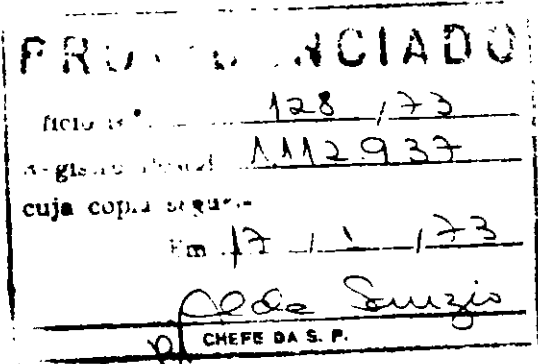 PROVIDENCIADO
ficio n° 128 / 73
1112.937
cuja copia segue
Em 17 / 1 / 73
CHEFE DA S. P.